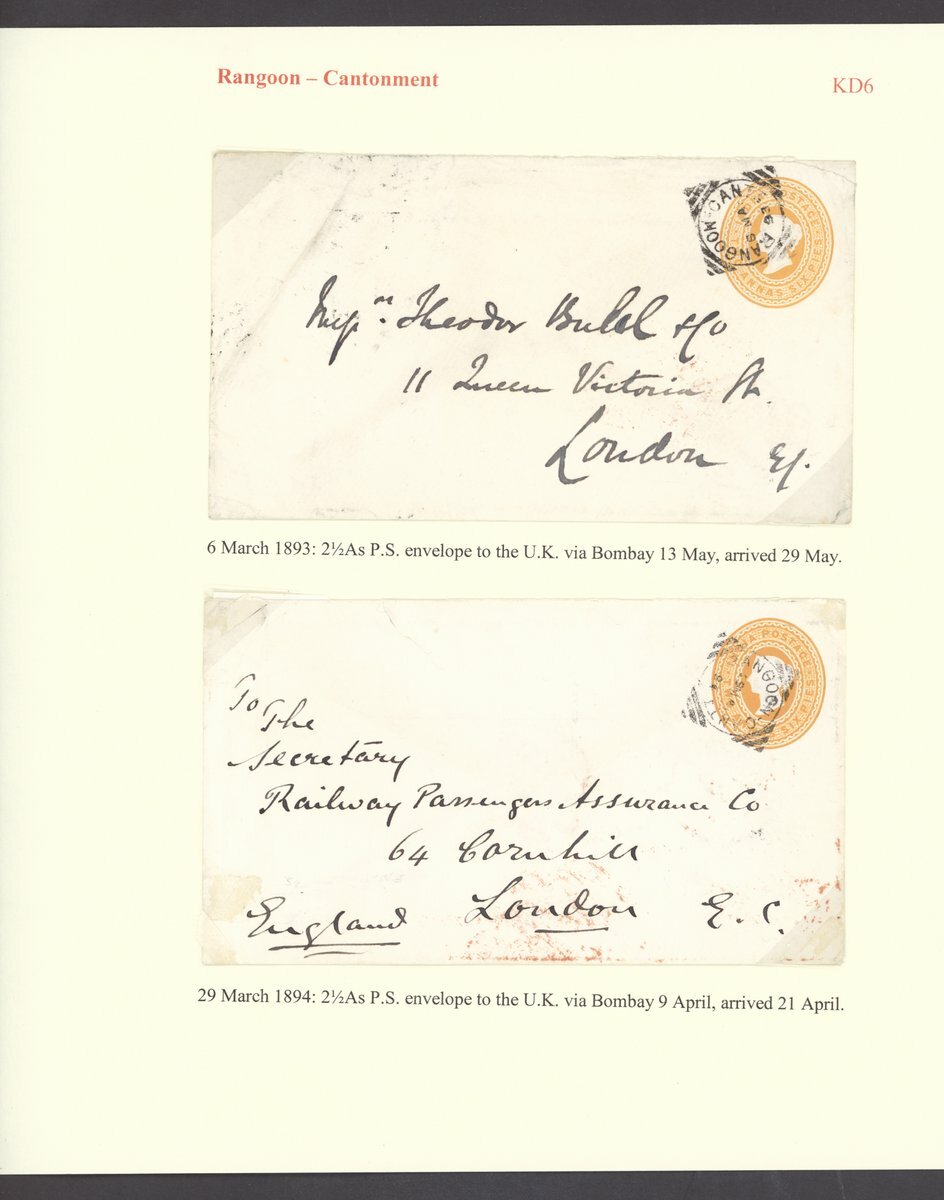 Rangoon – Cantonment
KD6
RANGOON-CAN
POSTAGE
ANNAS SIX PIES
Theodor & Co
11 Queen Victoria St.
London
6 March 1893: 2½As P.S. envelope to the U.K. via Bombay 13 May, arrived 29 May.
POSTAGE
SIX PIES
RANGOON CANTT
94
To
The
Secretary
Railway Passengers Assurance Co
64 Cornhill
London E.C.
England
29 March 1894: 2½As P.S. envelope to the U.K. via Bombay 9 April, arrived 21 April.